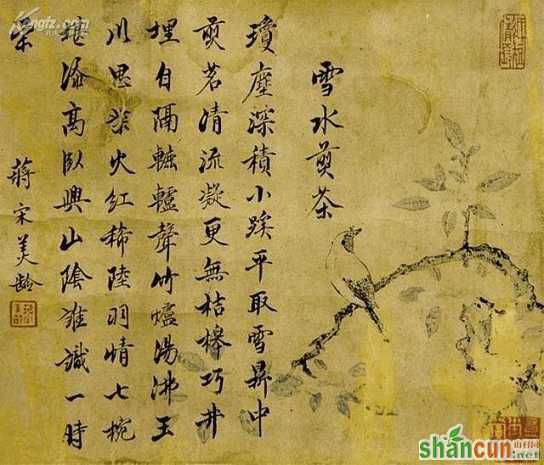 雪水煎茶
瓊塵深積小蹊平取雪鼎中
煎茗清流凝更無桔槔巧井
埋自隔轆轤聲竹爐湯沸玉
川思火紅稀陸羽情七椀
添高臥興山陰誰識一時
蔣宋美齡
shancun
.net